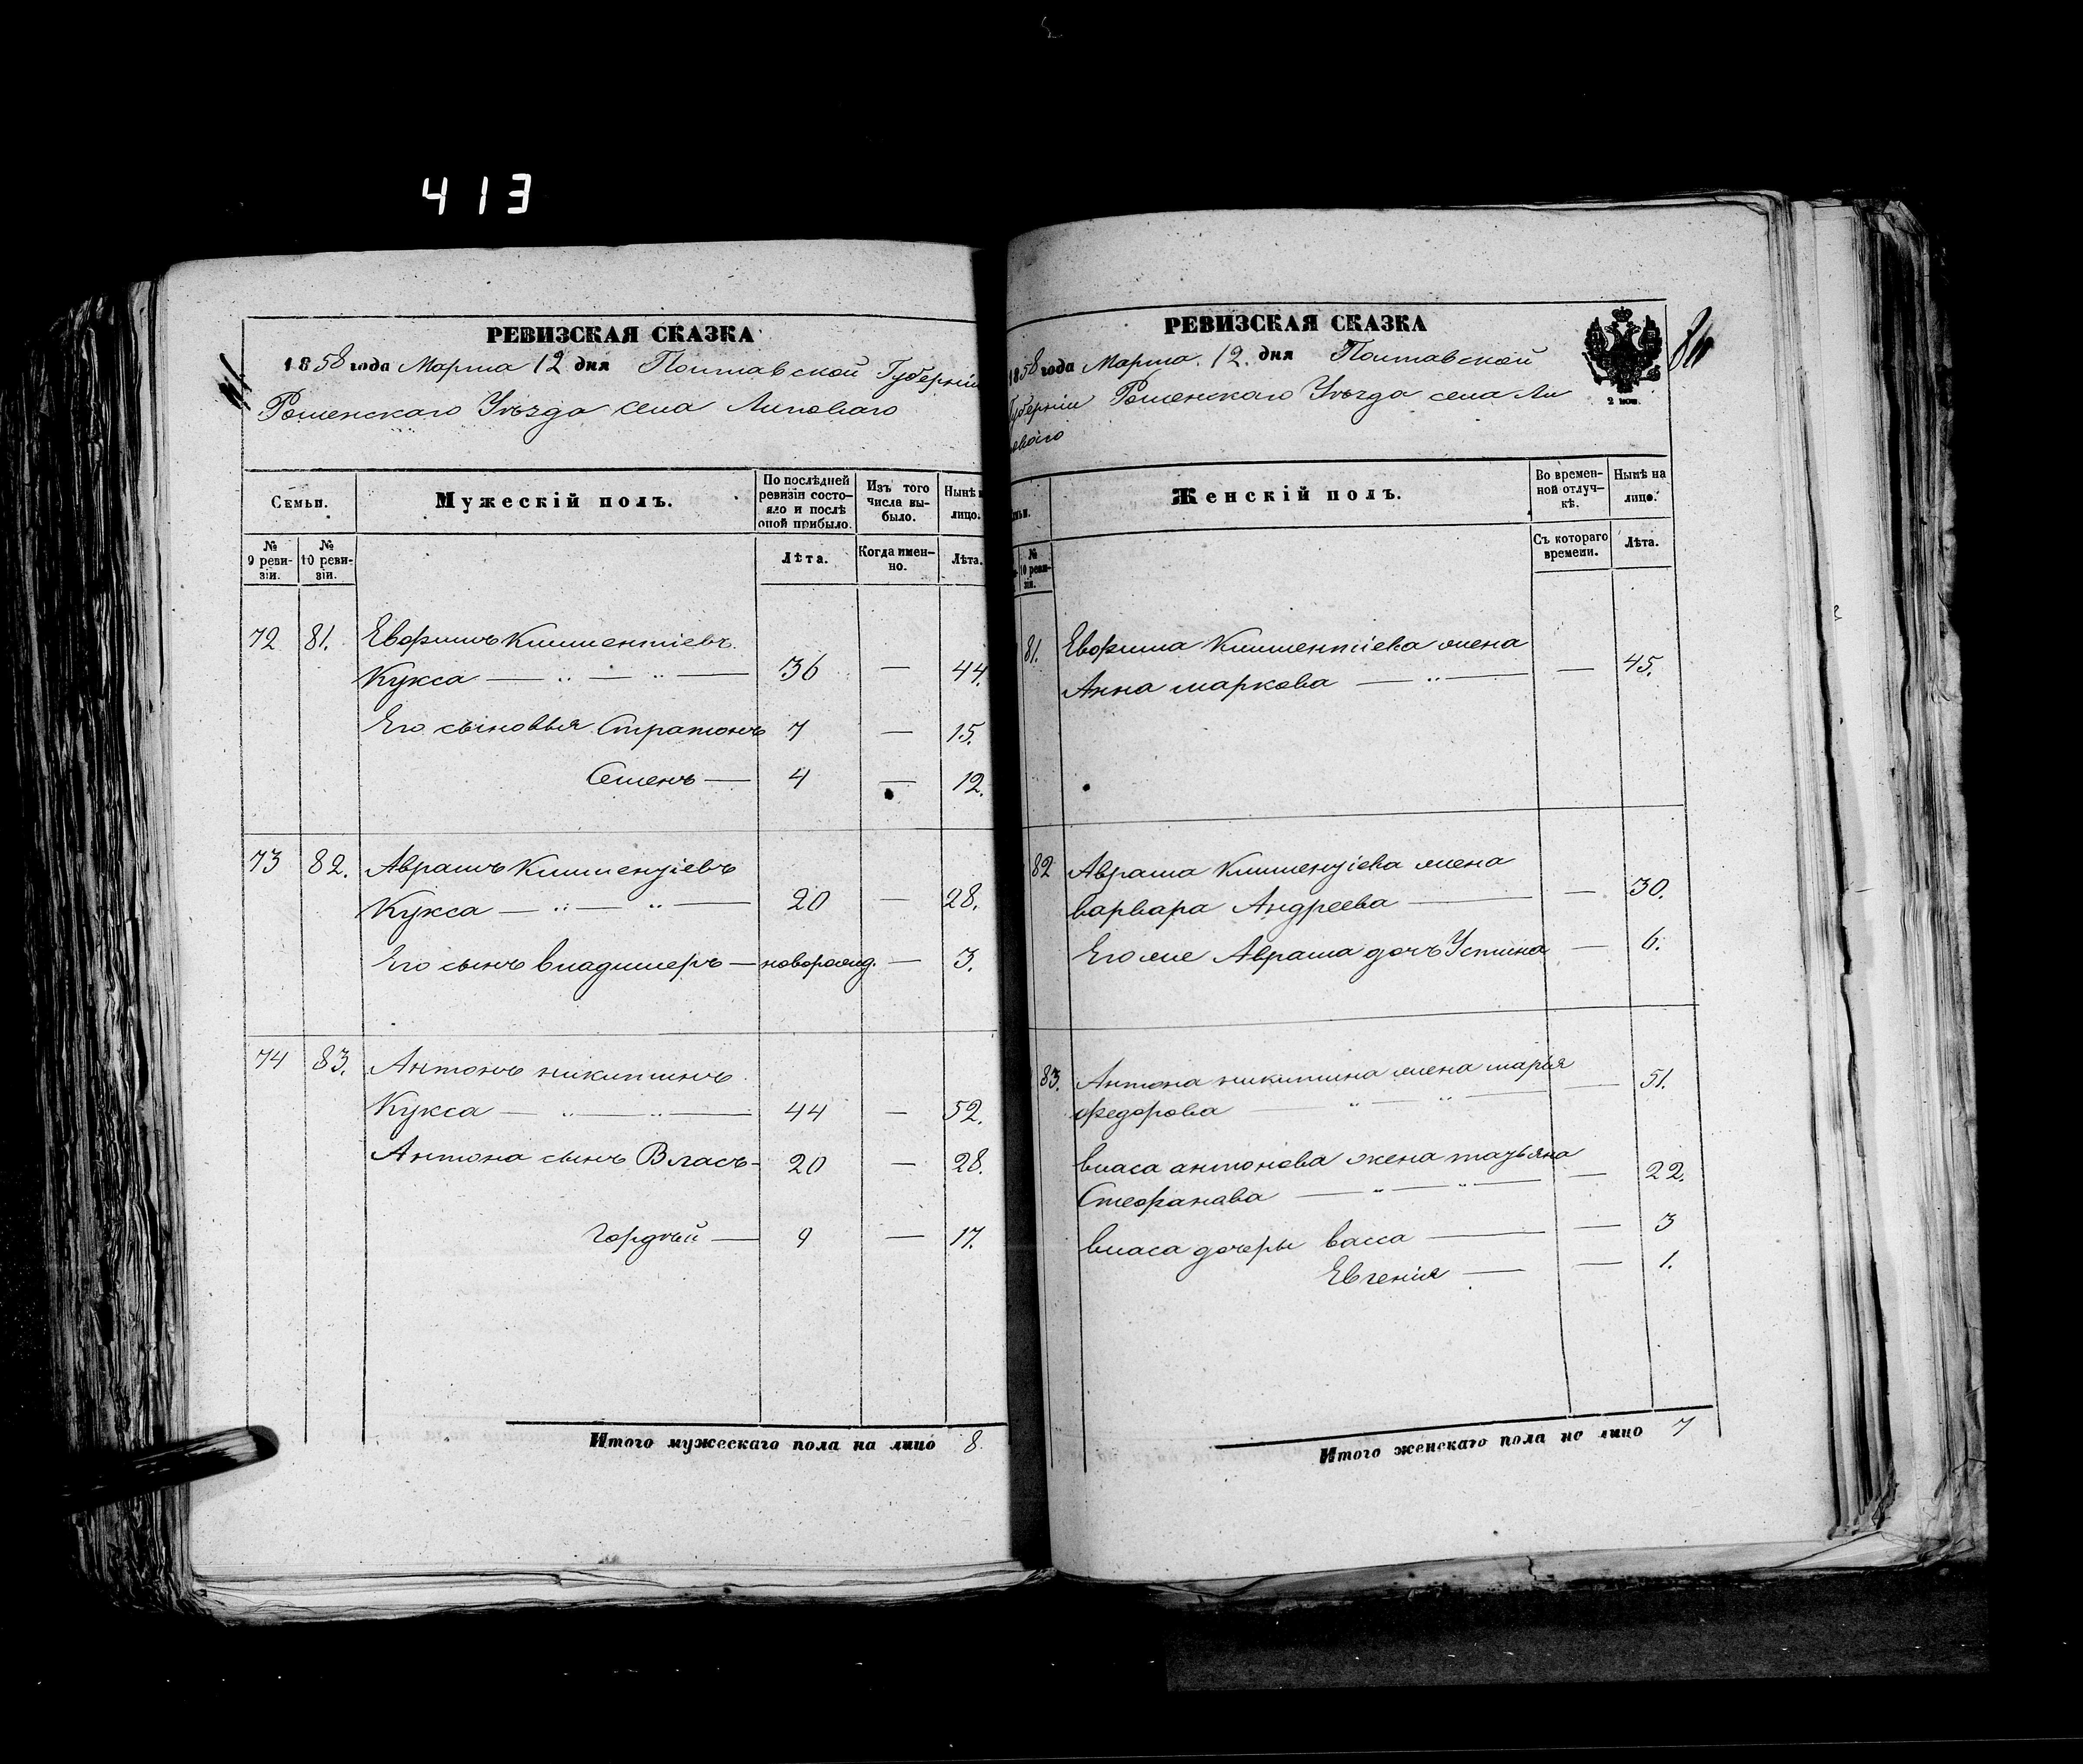 413
РЕВИЗСКАЯ СКАЗКА
1858 года Марта 12 дня Полтавской Губерніи
Роменскаго Уѣзда села Липоваго
Семьи.
Мужескій полъ.
По послѣдней ревизіи состояло и послѣ оной прибыло.
Изъ того числа выбыло.
Нынѣ
лицо.
№ 9 ревизіи.
№ 10 ревизіи.
Лѣта.
Когда именно.
Лѣта.
72 81. Евфимъ Климентіевъ
Кукса — „ — „ — 36 — 44.
Его сыновья Стратонъ 7 — 15.
Семенъ — 4 — 12.
73 82. Аврамъ Климентіевъ
Кукса — „ — „ — 20 — 28.
Его сынъ Владимеръ — новорожд. — 3.
74 83. Антонъ никитинъ
Кукса — „ — „ — 44 — 52.
Антона сынъ Власъ - 20 — 28.
Гордѣй — 9 — 17.
Итого мужескаго пола на лицо 8.
РЕВИЗСКАЯ СКАЗКА
1858 года Марта 12. дня Полтавской
Губерніи Роменскаго Уѣзда села Ли
поваго
2 коп.
Женскій полъ.
Во временной отлучкѣ.
Нынѣ на лицо.
№ 10 ревизіи.
Съ котораго времени.
Лѣта.
81. Евфима Климентіева жена
Анна маркова — „ — — 45.
82 Аврама Климентіева жена
варвара Андреева — — 30.
Его же Аврама дочь Устина — 6.
83. Антона никитина жена марья — 51.
федорова — „ — „ —
власа антонова жена татьяна
Стефанава — „ — „ — — 22.
власа дочеры васса — — 3
Евгенія — — 1.
Итого женскаго пола на лицо 7